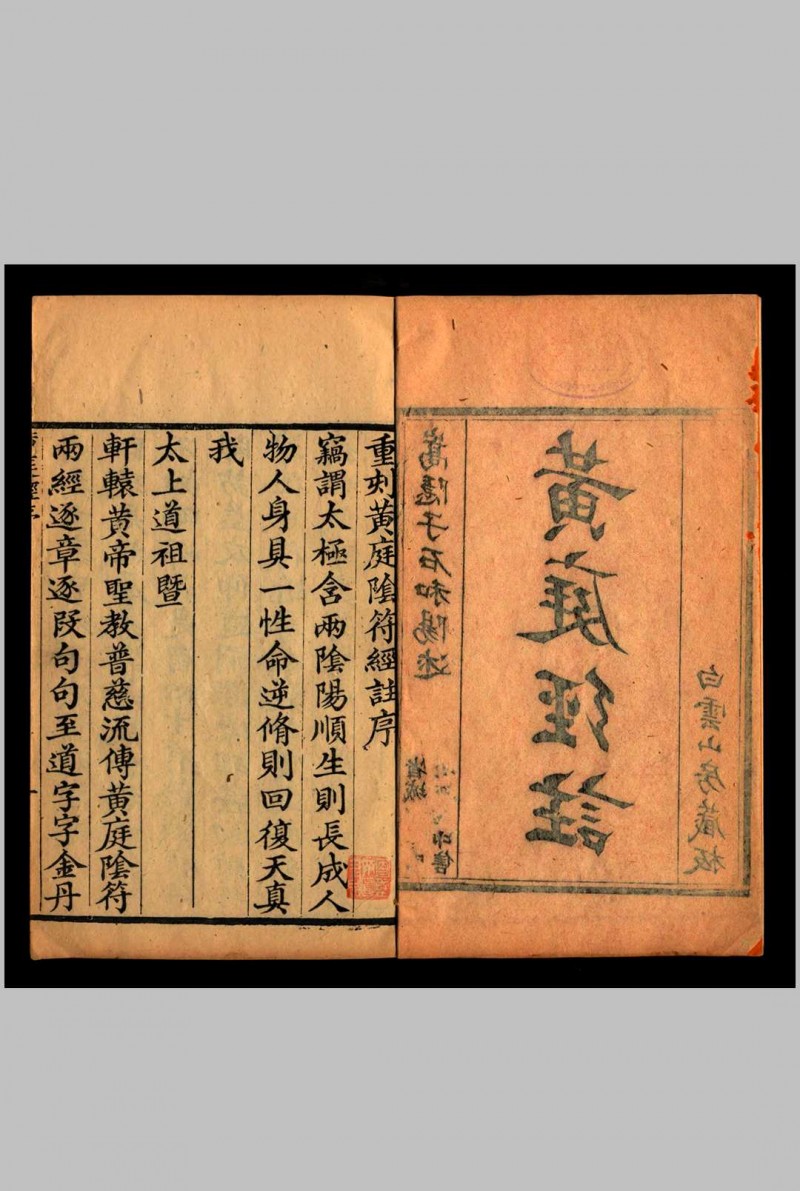 白雲山房藏板
黃庭經註
嵩隱子石和陽述
省城
印售
重刻黃庭陰符經註序
竊謂太極含兩陰陽順生則長成人
物人身具一性命逆脩則回復天真
我
太上道祖暨
軒轅黃帝聖教普慈流傳黃庭陰符
兩經逐章逐段句句至道字字金丹